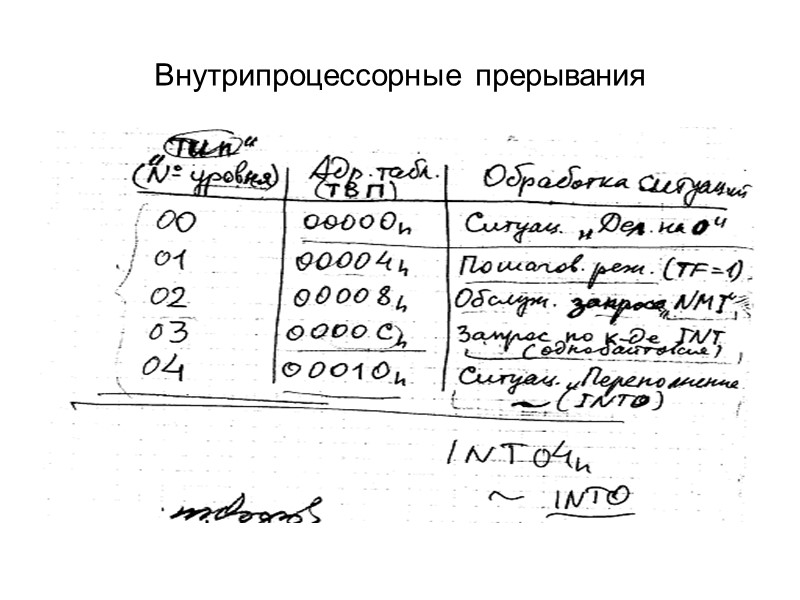 Внутрипроцессорные прерывания
"Тип"
(№ уровня) Адр. табл. (ТВП) Обработка ситуаций
00 00000h Ситуац. „Дел. на 0"
01 00004h Пошагов. реж. (TF=1)
02 00008h Обслуж. запроса „NMI"
03 0000Ch Запрос по к-де INT
(однобайтовая)
04 00010h Ситуац. „Переполнение
~ (INTO)
INT 04h
~ INTO